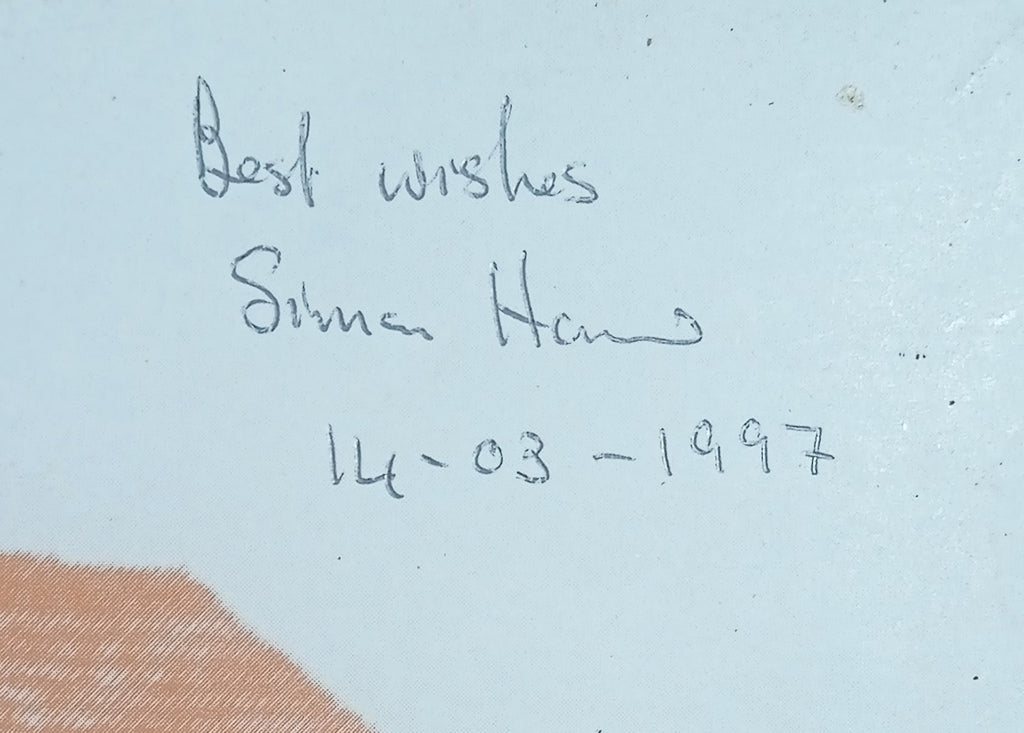 Best wishes
Simon
14-03-1997